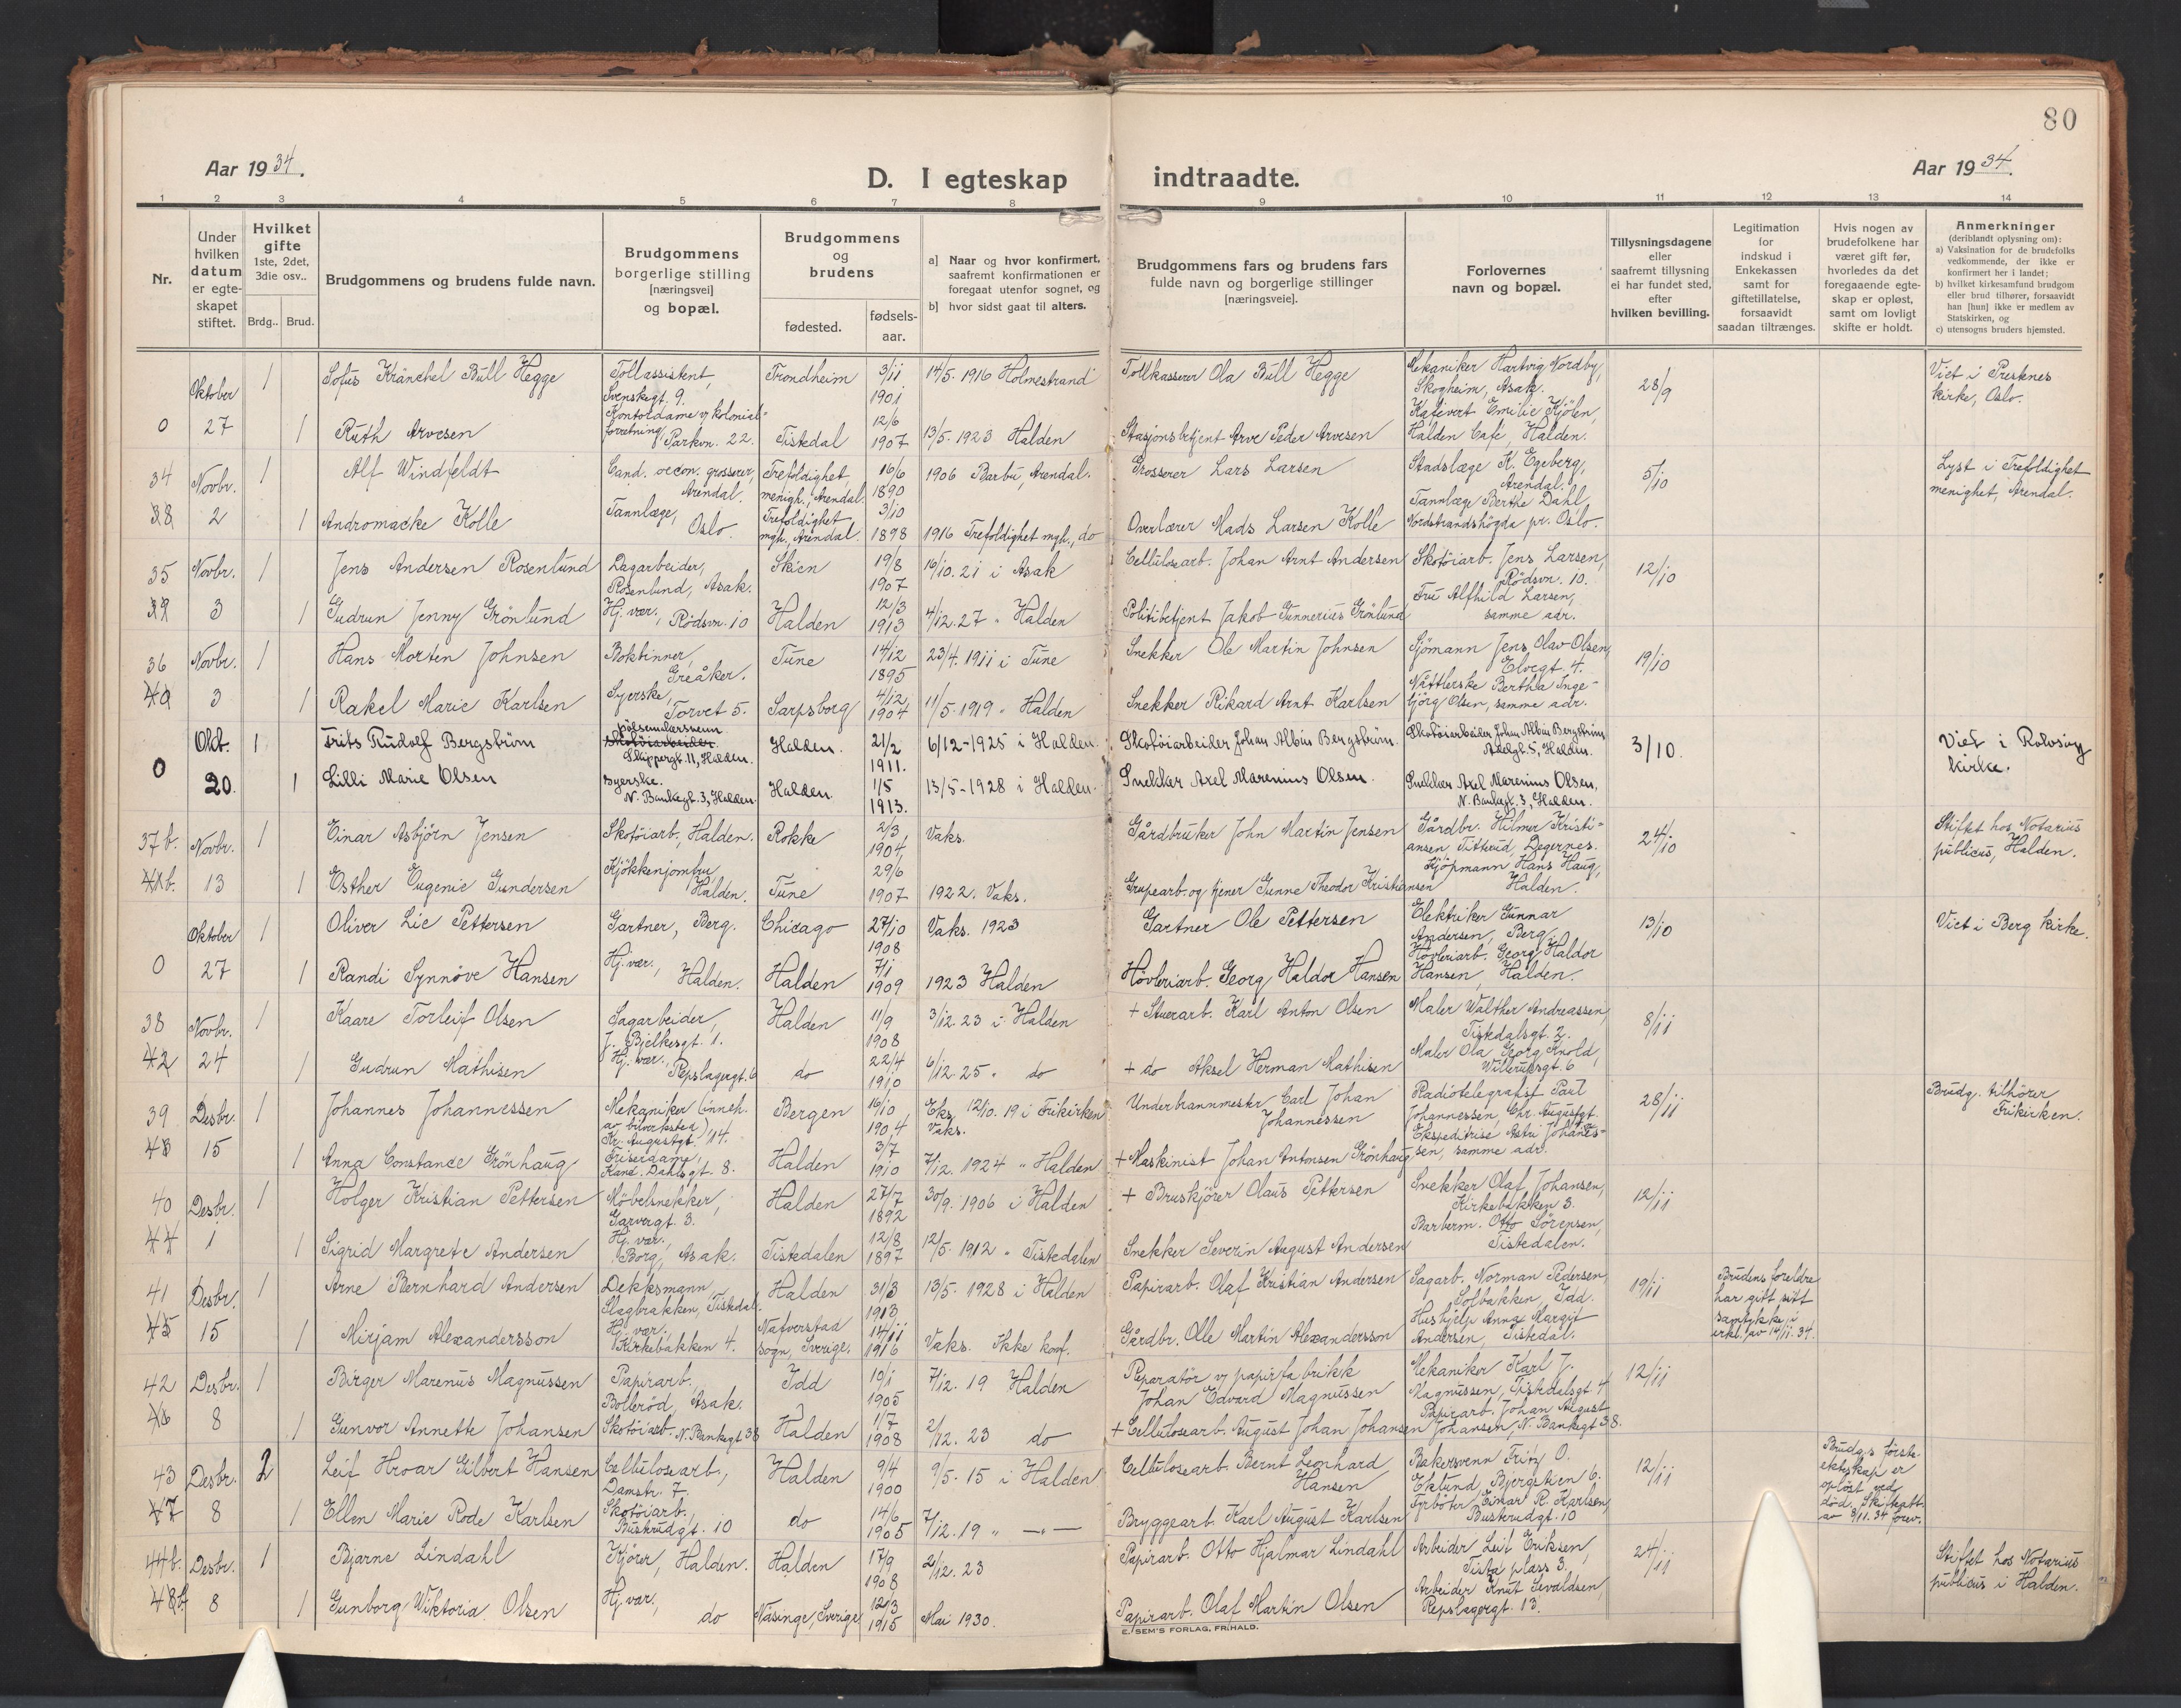 80
Aar 1934.
D. I egteskap indtraadte.
Aar 1934.
1 2 3 4 5 6 7 8 9 10 11 12 13 14
Nr.
Under hvilken datum er egteskapet stiftet.
Hvilket gifte 1ste, 2det, 3die osv..
Brdg.. Brud.
Brudgommens og brudens fulde navn.
Brudgommens borgerlige stilling [næringsvei] og bopæl.
Brudgommens og brudens
fødested.
fødsels-aar.
a] Naar og hvor konfirmert, saafremt konfirmationen er foregaat utenfor sognet, og
b] hvor sidst gaat til alters.
Brudgommens fars og brudens fars fulde navn og borgerlige stillinger [næringsveie].
Forlovernes navn og bopæl.
Tillysningsdagene eller saafremt tillysning ei har fundet sted, efter hvilken bevilling.
Legitimation for indskud i Enkekassen samt for giftetillatelse, forsaavidt saadan tiltrænges.
Hvis nogen av brudefolkene har været gift før, hvorledes da det foregaaende egteskap er opløst, samt om lovligt skifte er holdt.
Anmerkninger (deriblandt oplysning om):
a) Vaksination for de brudefolks vedkommende, der ikke er konfirmert her i landet;
b) hvilket kirkesamfund brudgom eller brud tilhører, forsaavidt han [hun] ikke er medlem av Statskirken, og
c) utensogns bruders hjemsted.
0 Oktober 27 1 Sofus Kränchel Bull Hegge Tollassistent, Svenskegt. 9. Trondheim 3/11 1901 14/5. 1916 Holmestrand Tollkasserer Ola Bull Hegge Mekaniker Hartvig Nordby, Skogheim, Asak. 28/9 Viet i Presknes kirke, Oslo.
1 Ruth Arvesen Kontordame v/ kolonialforretning, Parkvn. 22. Tistedal 12/6 1907 13/5. 1923 Halden Stasjonsbetjent Arve Peder Arvesen Kafévert Emilie Kjölen, Halden Café, Halden.
34 38 Novbr. 2 1 Alf Windfeldt Cand. oecon. grosserer, Arendal. Trefoldighet, menigh., Arendal 16/6 1890 1906 Barbu, Arendal. Grosserer Lars Larsen Stadslæge K. Egeberg, Arendal. 5/10 Lyst i Trefoldighet menighet, Arendal.
1 Andromacke Kolle Tannlæge, Oslo. Trefoldighet mgh., Arendal. 3/10 1898 1916 Trefoldighet mgh., do Overlærer Mads Larsen Kolle Tannlæge Berthe Dahl, Nordstrandshögda pr. Oslo.
35 39 Novbr. 3 1 Jens Andersen Rosenlund Dagarbeider, Rosenlund, Asak. Skien 19/8 1907 16/10. 21 i Asak Cellulosearb. Johan Arnt Andersen Skotöiarb. Jens Larsen, Rödsvn. 10. 12/10
1 Gudrun Jenny Grönlund Hj. vær., Rödsvn. 10 Halden 12/3 1913 4/12. 27 " Halden Politibetjent Jakob Gunnerius Grönlund Fru Alfhild Larsen, samme adr.
36 40 Novbr. 3 1 Hans Morten Johnsen Bokbinner, Greåker. Tune 14/12 1895 23/4. 1911 i Tune Snekker Ole Martin Johnsen Sjömann Jens Olav Olsen, Elvegt. 4. 19/10
1 Rakel Marie Karlsen Syerske, Torvet 5. Sarpsborg 4/12 1904 11/5. 1919 " Halden Snekker Rikard Arnt Karlsen Nåttlerske Bertha Ingebjörg Olsen, samme adr.
0 Okt. 20. 1 Frits Rudolf Bergström Skotöiarbeider Skippergt. 11, Halden. Halden. 21/2 1911. 6/12-1925 i Halden. Skotöiarbeider Johan Albin Bergström. Skotöiarbeider Johan Albin Bergström Adelgt. 5, Halden. 3/10. Viet i Rolvsöy kirke.
1 Lilli Marie Olsen Syerske. N. Bankegt. 3, Halden. Halden. 1/5 1913. 13/5-1928 i Halden. Snekker Axel Marenius Olsen. Snekker Axel Marenius Olsen, N. Bankegt. 3, Halden.
37 b. 41 b. Novbr. 13 1 Einar Asbjörn Jensen Skotöiarb., Halden. Rokke 2/3 1904 Vaks. Gårdbruker John Martin Jensen Gårdbr. Hilmer Kristiansen Tittevid, Degernes. 24/10 Stiftet hos Notarius publicus, Halden.
1 Esther Eugenie Gundersen Kjökkenjomfru Halden. Tune 29/6 1907 1922. Vaks. Grupearb. og tjener Gunne Theodor Kristiansen Kjöpmann Hans Haug, Halden.
0 Oktober 27 1 Oliver Lie Pettersen Gartner, Berg. Chicago 27/10 1908 Vaks. 1923 Gartner Ole Pettersen Elektriker Gunnar Andersen, Berg. 13/10 Viet i Berg kirke.
1 Randi Synnöve Hansen Hj. vær., Halden. Halden 7/1 1909 1923 Halden Hövleriarb. Georg Haldor Hansen Hövleriarb. Georg Haldor Hansen, Halden.
38 42 Novbr. 24 1 Kaare Torleif Olsen Sagarbeider, J. Bjelkesgt. 1. Halden 11/9 1908 3/12. 23 i Halden + Stuerarb. Karl Anton Olsen Maler Walther Andreassen, Tistedalsgt. 2. 8/11
1 Gudrun Mathisen Hj. vær., Repslagergt. 6 do 22/4 1910 6/12. 25 " do + do Aksel Herman Mathisen Maler Ola Georg Knold, Willerudsgt. 6
39 43 Desbr. 15 1 Johannes Johannessen Mekaniker (inneh. av bilverksted) Kr. Augustgt. 14. Bergen 16/10 1904 Eks. 12/10. 19 i Frikirken Vaks. Underbrannmester Carl Johan Johannessen Radiotelegrafist Paul Johannessen, Chr. Augustgt. 28/11 Brudg. tilhörer Frikirken.
1 Anna Constance Grönhaug Friserdame, Kand. Dahlsgt. 8. Halden 3/7 1910 7/12. 1924 " Halden + Maskinist Johan Antonsen Grönhaug Ekspeditrise Astri Johannessen, samme adr.
40 44 Desbr. 1 1 Holger Kristian Pettersen Möbelsnekker, Garvergt. 3. Halden 27/7 1892 30/9. 1906 i Halden + Bruskjörer Olaus Pettersen Snekker Olaf Johansen, Kirkebakken 3. 12/11
1 Sigrid Margrete Andersen Hj. vær. Borg, Asak. Tistedalen 12/8 1897 12/5. 1912 " Tistedalen Snekker Severin August Andersen Barberm. Otto Sörensen, Tistedalen.
41 45 Desbr. 15 1 Arne Bernhard Andersen Dekksmann, Slagbrakken, Tistedal. Halden 31/3 1913 13/5. 1928 i Halden Papirarb. Olaf Kristian Andersen Sagarb. Norman Pedersen, Solbakken, Idd. 19/11 Brudens foreldre har gitt sitt samtykke i erkl. av 14/11. 34.
1 Mirjam Alexandersson Hj. vær. Kirkebakken 4. Nafverstad sogn, Sverige. 14/11 1916 Vaks. Ikke konf. Gårdbr. Olle Martin Alexandersson Hushjelp Anna Margit Andersen, Tistedal.
42 46 Desbr. 8 1 Birger Marenus Magnussen Papirarb. Bolleröd, Asak. Idd 19/1 1905 7/12. 19 Halden Reparatör v/ papirfabrikk Johan Edvard Magnussen Mekaniker Karl J. Magnussen, Tistedalsgt. 4 12/11
1 Gunvor Annette Johansen Skotöiarb. N. Bankegt. 38 Halden 1/7 1908 2/12. 23 do + Cellulosearb. August Johan Johansen Papirarb. Johan August Johansen, N. Bankegt 38.
43 47 Desbr. 8 2 Leif Hroar Gilbert Hansen Cellulosearb., Damstr. 7. Halden 9/4 1900 9/5. 15 i Halden Cellulosearb. Bernt Leonhard Hansen Bakersvenn Fritz O. Eklund, Bjergstien 6. 12/11 Brudg.s förste ekteskap er oplöst ved död. Skifteatt. av 9/11. 34 forev.
1 Ellen Marie Rode Karlsen Skotöiarb., Buskrudgt. 10 do 14/6 1905 7/12. 19 " —"— Bryggearb. Karl August Karlsen Fyrböter Einar R. Karlsen, Buskrudgt. 10
44 b. 48 b. Desbr. 8 1 Bjarne Lindahl Kjörer, Halden. Halden 17/9 1908 2/12. 23 Papirarb. Otto Hjalmar Lindahl Arbeider Leif Eriksen, Tista plass 3. 24/11 Stiftet hos Notarius publicus i Halden.
1 Gunborg Wiktoria Olsen Hj. vær., do Näsinge, Sverige 12/3 1915 Mai 1930. Papirarb. Olaf Martin Olsen Arbeider Knut Sevaldsen, Repslagergt. 13.
E. SEM'S FORLAG, FRIHALD.